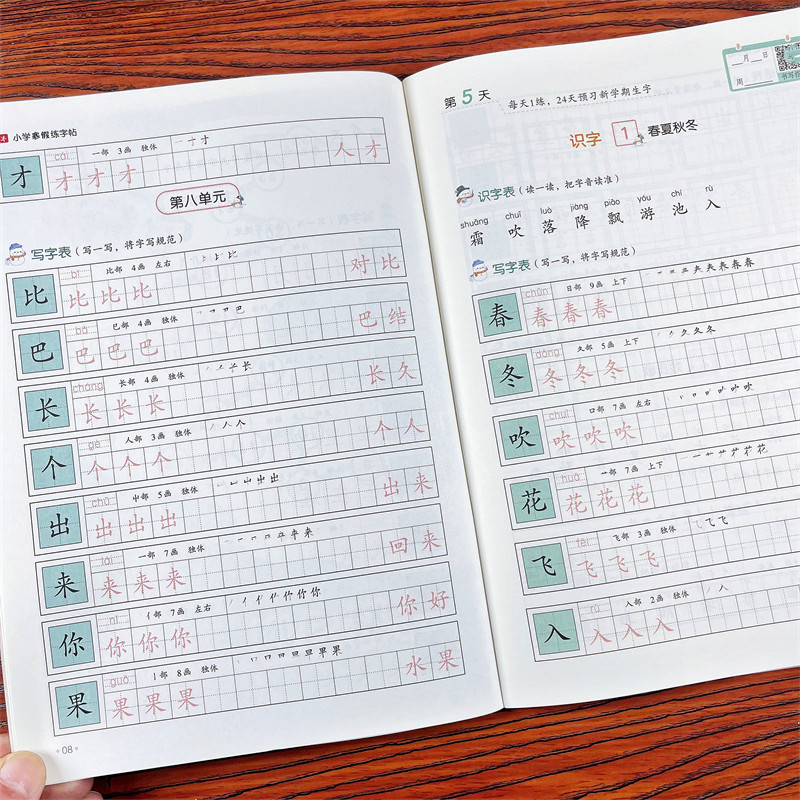 小学寒假练字帖
才 cái 一部 3画 独体
才 才 才 人 才
第八单元
写字表（写一写，将字写规范）
比 bǐ 比部 4画 左右
比 比 比 对 比
巴 bā 巳部 4画 独体
巴 巴 巴 巴 结
长 cháng 长部 4画 独体
长 长 长 长 久
个 gè 人部 3画 独体
个 个 个 个 人
出 chū 屮部 5画 独体
出 出 出 出 来
来 lái 一部 7画 独体
来 来 来 回 来
你 nǐ 亻部 7画 左右
你 你 你 你 好
果 guǒ 丨部 8画 独体
果 果 果 水 果
08
第 5 天
每天1练，24天预习新学期生字
__月__日
周
识字 1 春夏秋冬
识字表（读一读，把字音读准）
shuāng chuī luò jiàng piāo yóu chí rù
霜 吹 落 降 飘 游 池 入
写字表（写一写，将字写规范）
春 chūn 日部 9画 上下
春 春 春
冬 dōng 夂部 5画 上下
冬 冬 冬
吹 chuī 口部 7画 左右
吹 吹 吹
花 huā 艹部 7画 上下
花 花 花
飞 fēi 飞部 3画 独体
飞 飞 飞
入 rù 入部 2画 独体
入 入 入